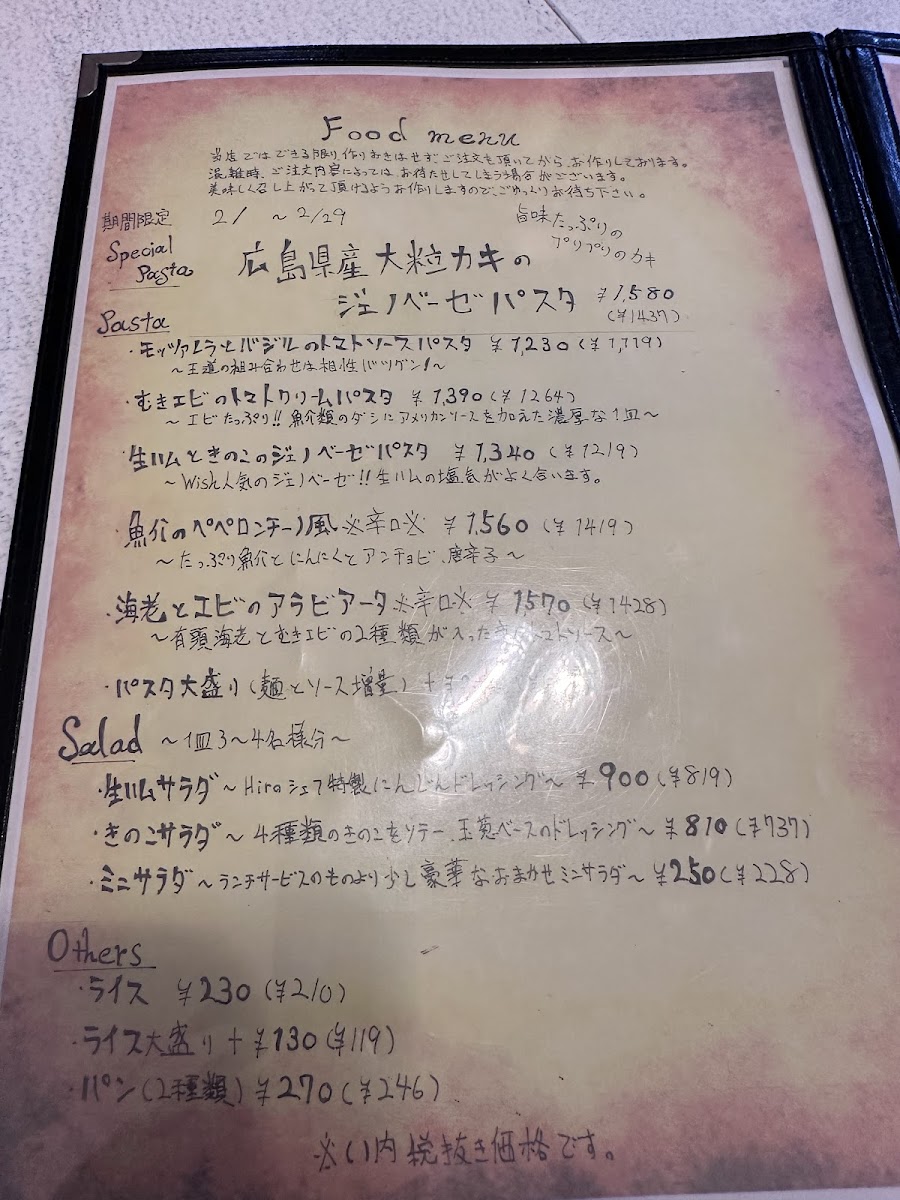 Food menu
当店ではできる限り、作りおきはせず、ご注文を頂いてから、お作りしております。
混雑時、ご注文内容によっては、お待たせしてしまう場合がございます。
美味しく召し上がて頂けるようお作りしますので、ごゆっくりお待ち下さい。
期間限定 2/ ～2/29
旨味たっぷりの
プリプリのカキ
Special
Pasta
広島県産大粒カキの
ジェノベーゼパスタ ¥1,580
(¥1437)
Pasta
・モッツァレラとバジルのトマトソースパスタ ¥1,230(¥1,119)
～王道の組み合わせは相性バツグン!～
・むきエビのトマトクリームパスタ ¥1,390(¥1264)
～エビたっぷり!!魚介類のダシにアメリカンソースを加えた濃厚な1皿～
・生ハムときのこのジェノベーゼパスタ ¥1,340(¥1219)
～Wish人気のジェノベーゼ!!生ハムの塩気がよく合います。
・魚介のペペロンチーノ風※辛口※ ¥1,560(¥1419)
～たっぷり魚介とにんにくとアンチョビ、唐辛子～
・海老とエビのアラビアータ※辛口※ ¥1570(¥1428)
～有頭海老とむきエビの2種類が入った トマトソース～
・パスタ大盛り(麺とソース増量)+
Salad ～1皿3～4名様分～
・生ハムサラダ～Hiroシェフ特製にんじんドレッシング～ ¥900(¥819)
・きのこサラダ～4種類のきのこをソテー、玉葱ベースのドレッシング～¥810(¥737)
・ミニサラダ～ランチサービスのものより少し豪華なおまかせミニサラダ～¥250(¥228)
Others
・ライス ¥230(¥210)
・ライス大盛り+¥130(¥119)
・パン(2種類)¥270(¥246)
※( )内税抜き価格です。